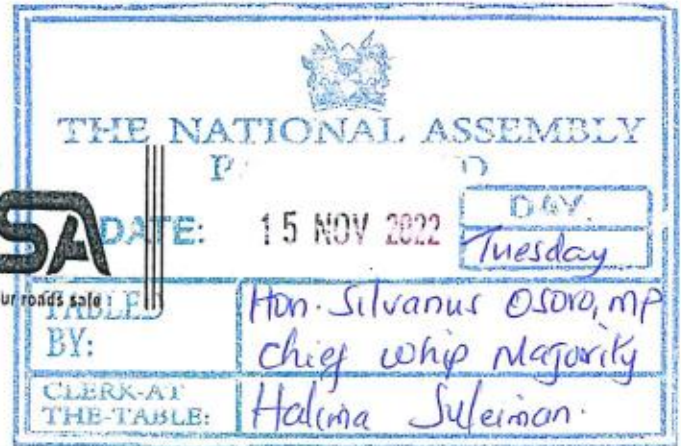 THE NATIONAL ASSEMBLY
SA
our roads safe
DATE: 15 NOV 2022
DAY.
Tuesday
TABLED BY:
Hon. Silvanus Osoro, MP
Chief Whip Majority
CLERK-AT THE-TABLE:
Halima Suleiman.